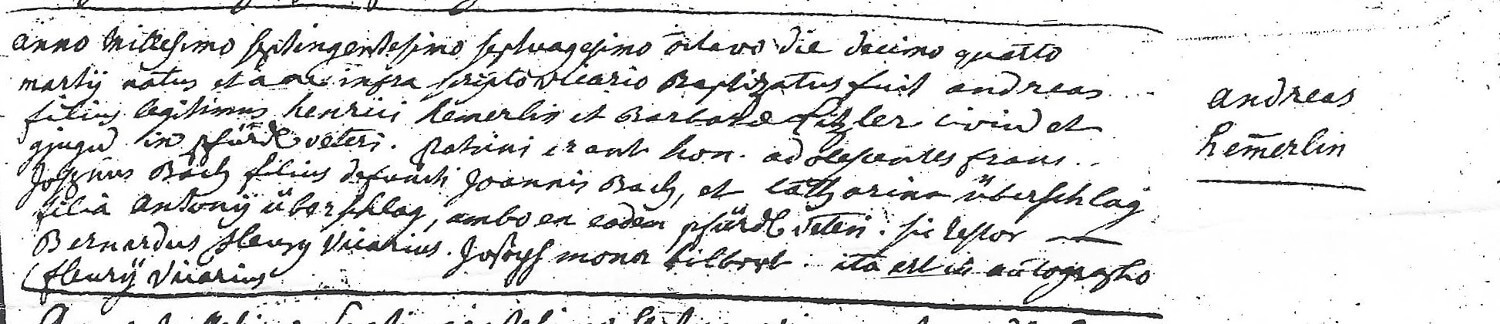 anno Millesimo septingentesimo septuagesimo octavo die decimo quarto
martij natus et a me infra scripto vicario Baptizatus fuit andreas
filius legitimus henrici hem̄erlin et Barbara Fitzler civiu et
gjugu in pfürdt veteri. patrini erant hon. adolescentes frans..
Josephus Bach filius defuncti Joannis Bach, et Catharina überschlag
filia Antonij überschlag, ambo ex eodem pfürdt veteri. sic testor
Bernardus fleury Vicarius. Joseph ita est in autographo
fleurÿ Vicarius
andreas
hem̄erlin